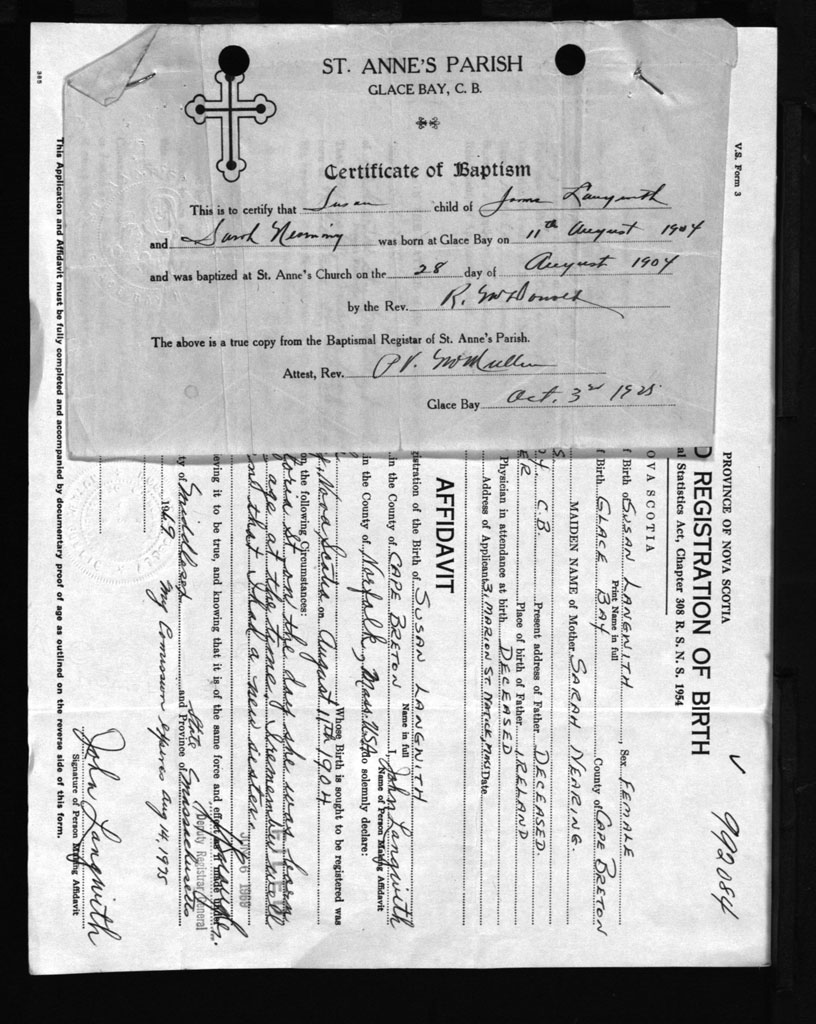 ST. ANNE'S PARISH
GLACE BAY, C. B.
Certificate of Baptism
This is to certify that Susan child of James Langwith
and Sarah was born at Glace Bay on 11th August 1904
and was baptized at St. Anne's Church on the 28 day of August 1904
by the Rev. R. McDonald
The above is a true copy from the Baptismal Registar of St. Anne's Parish.
Attest, Rev. P V. McMullen
Glace Bay Oct. 3rd 1925
385
V.S. Form 3
992084
PROVINCE OF NOVA SCOTIA
D REGISTRATION OF BIRTH
al Statistics Act, Chapter 308 R. S. N. S. 1954
OVA SCOTIA
f Birth of SUSAN LANGWITH, Sex FEMALE
Print Name in full
f Birth GLACE BAY County of CAPE BRETON
MAIDEN NAME of Mother SARAH NEARING.
Y C.B. Present address of Father DECEASED.
ER Place of birth of Father IRELAND
Physician in attendance at birth DECEASED
Address of Applicant 31 MARION ST. NATICK, MASS Date
AFFIDAVIT
istration of the Birth of SUSAN LANGWITH
Name in full
in the County of CAPE BRETON I, John Langwith
Name of Person Making Affidavit
in the County of Norfolk, Mass USA do solemnly declare:
Whose Birth is sought to be registered was
Nova Scotia on August 11th 1904
on the following Circumstances:
toria St on the day she was born
age at the time. I remember well
that I had a new sister.
eving it to be true, and knowing that it is of the same force and effect
JUN 6 1969
Deputy Registrar General
ty of Middlesex and Province of Massachusetts
State
1969. My Comission expires Aug 14, 1975
John Langwith
Signature of Person Making Affidavit
This Application and Affidavit must be fully completed and accompanied by documentary proof of age as outlined on the reverse side of this form.